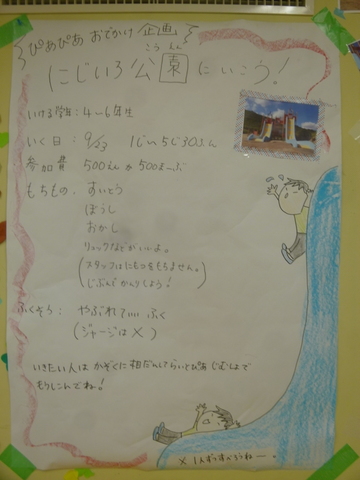 ぴあぴあ おでかけ 企画
にじいろ公園にいこう!
こうえん
いける学年:4〜6年生
いく日:9/23 1じ〜5じ30ぷん
参加費 500えん か 500まーぶ
もちもの、すいとう
ぼうし
おかし
リュックなどがいいよ。
(スタッフはにもつをもちません。
じぶんでかんりしよう!)
ふくそう:やぶれていいふく
(ジャージは×)
いきたい人はかぞくに相だんしてらいとぴあじむしょで
もうしこんでね!
× 1人ずつすべろうねー。